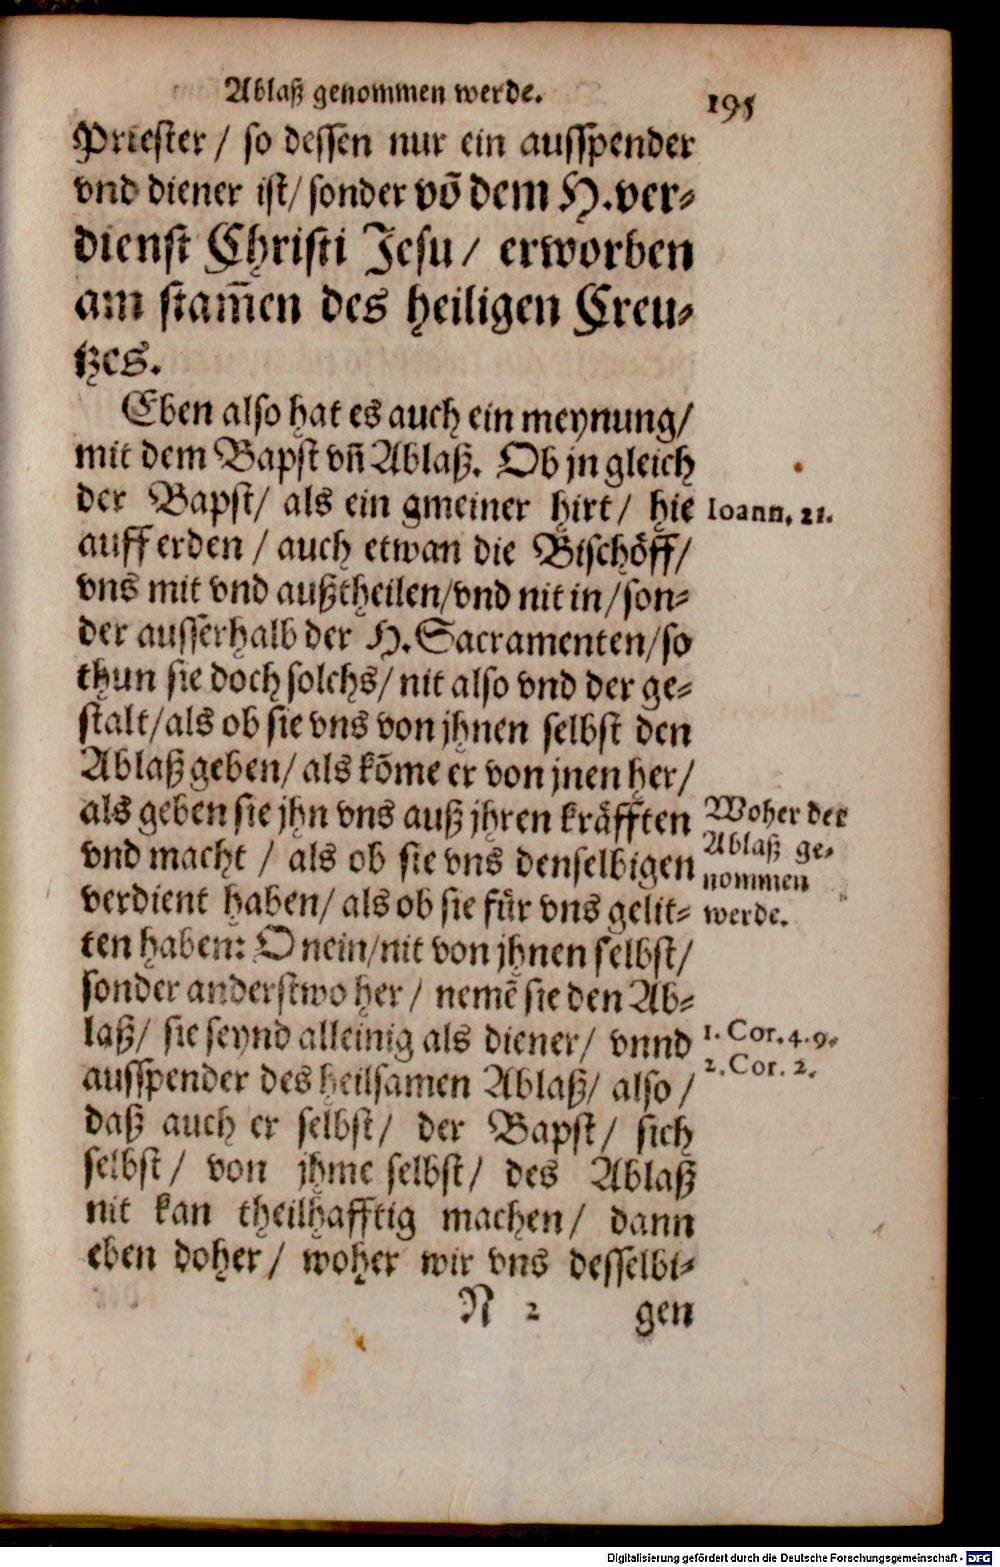 Ablaß genommen werde. 195
Priester / so dessen nur ein ausspender
vnd diener ist/ sonder võ dem H. ver⸗
dienst Christi Jesu / erworben
am stam̃en des heiligen Creu⸗
tzes.
Eben also hat es auch ein meynung/
mit dem Bapst vñ Ablaß. Ob jn gleich
der Bapst/ als ein gmeiner hirt/ hie
auff erden / auch etwan die Bischöff/
vns mit vnd außtheilen/vnd nit in/son⸗
der ausserhalb der H. Sacramenten/so
thun sie doch solchs/ nit also vnd der ge⸗
stalt/als ob sie vns von jhnen selbst den
Ablaß geben/ als kõme er von jnen her/
als geben sie jhn vns auß jhren kräfften
vnd macht / als ob sie vns denselbigen
verdient haben/ als ob sie für vns gelit⸗
ten haben: O nein/nit von jhnen selbst/
sonder anderstwo her / nemẽ sie den Ab⸗
laß/ sie seynd alleinig als diener/ vnnd
ausspender des heilsamen Ablaß/ also /
daß auch er selbst/ der Bapst/ sich
selbst/ von jhme selbst/ des Ablaß
nit kan theilhafftig machen/ dann
eben doher/ woher wir vns desselbi⸗
N 2 gen
Ioann. 21.
Woher der
Ablaß ge⸗
nommen
werde.
1. Cor. 4. 9.
2. Cor. 2.
Digitalisierung gefördert durch die Deutsche Forschungsgemeinschaft - DFG